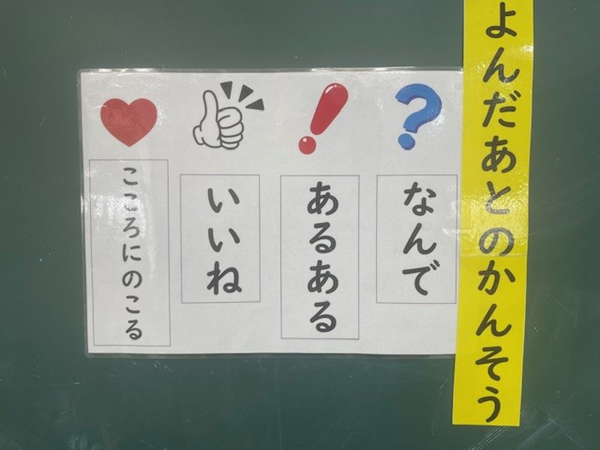 よんだあとのかんそう
?
なんで
!
あるある
いいね
こころにのこる